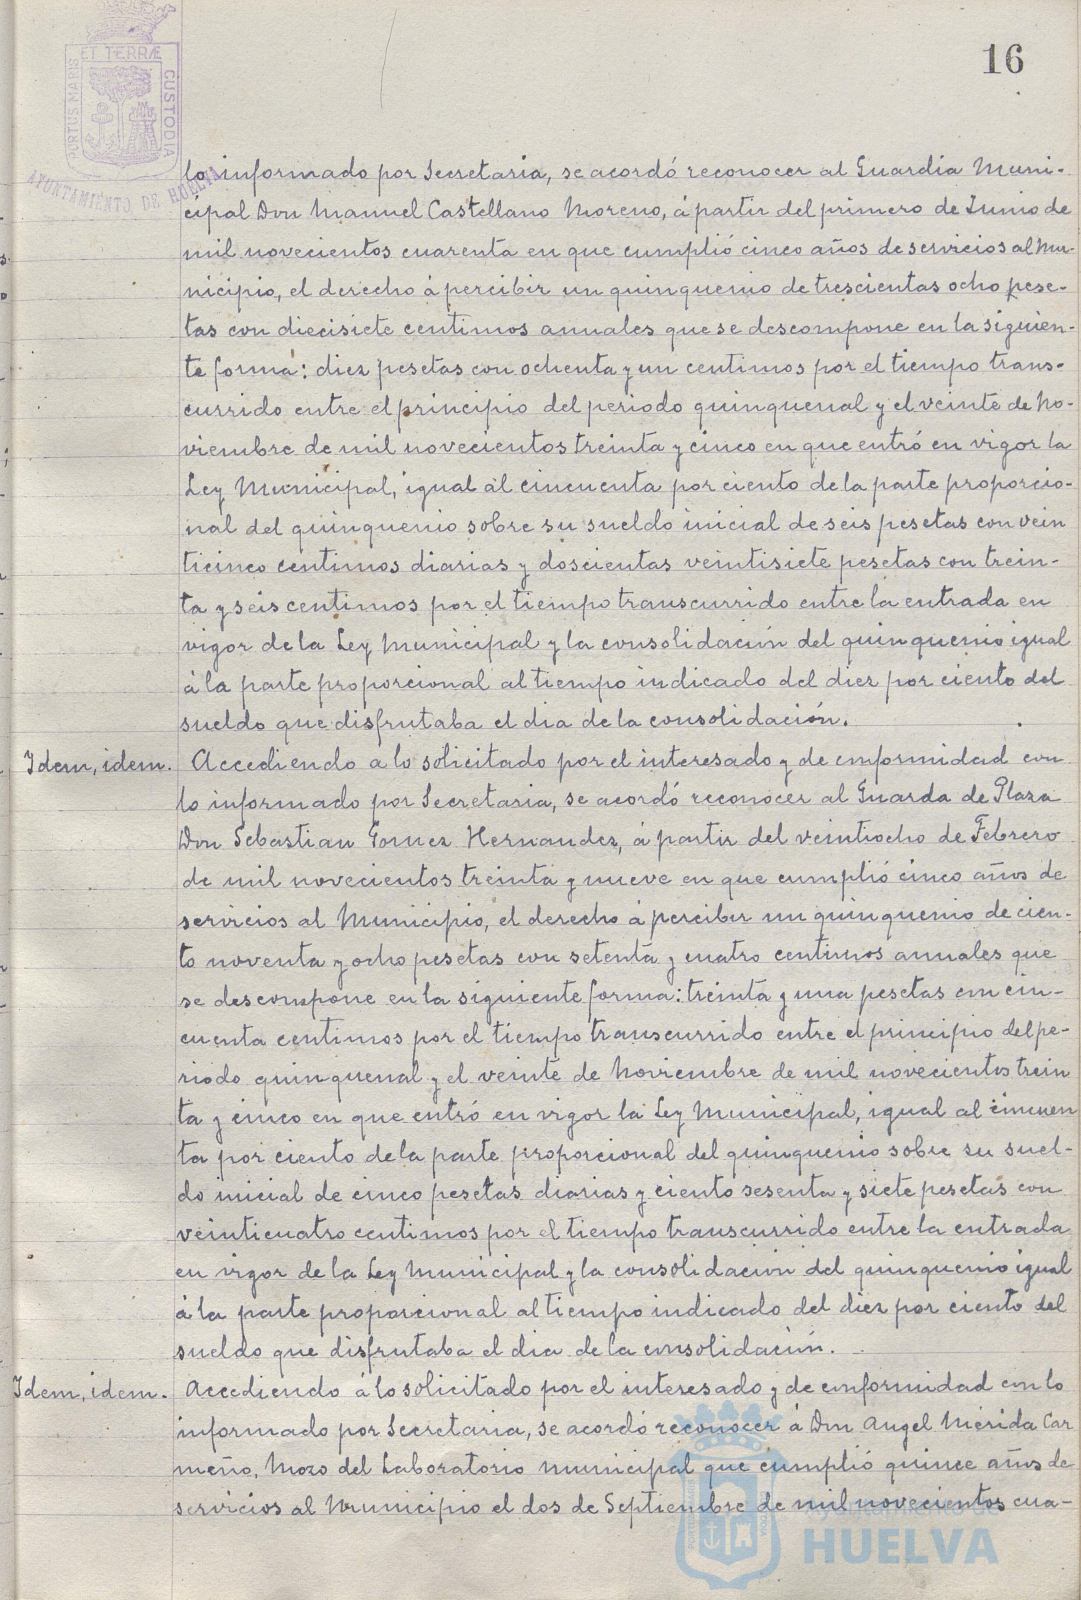 16
PORTUS MARIS ET TERRÆ CUSTODIA
AYUNTAMIENTO DE HUELVA
lo informado por Secretaria, se acordó reconocer al Guardia Muni-
cipal Don Manuel Castellano Moreno, á partir del primero de Junio de
mil novecientos cuarenta en que cumplió cinco años de servicios al Mu-
nicipio, el derecho á percibir un quinquenio de trescientas ocho pese-
tas con diecisiete centimos anuales que se descompone en la siguien-
te forma: diez pesetas con ochenta y un centimos por el tiempo trans-
currido entre el principio del periodo quinquenal y el veinte de No-
viembre de mil novecientos treinta y cinco en que entró en vigor la
Ley Municipal, igual al cincuenta por ciento de la parte proporcio-
nal del quinquenio sobre su sueldo inicial de seis pesetas con vein
ticinco centimos diarias y doscientas veintisiete pesetas con trein-
ta y seis centimos por el tiempo transcurrido entre la entrada en
vigor de la Ley Municipal y la consolidación del quinquenio igual
á la parte proporcional al tiempo indicado del diez por ciento del
sueldo que disfrutaba el dia de la consolidación.
Idem, idem. Accediendo a lo solicitado por el interesado y de conformidad con
lo informado por Secretaria, se acordó reconocer al Guarda de Plaza
Don Sebastian Gomez Hernandez, á partir del veintiocho de Febrero
de mil novecientos treinta y nueve en que cumplió cinco años de
servicios al Municipio, el derecho á percibir un quinquenio de cien-
to noventa y ocho pesetas con setenta y cuatro centimos anuales que
se descompone en la siguiente forma: treinta y una pesetas con cin-
cuenta centimos por el tiempo transcurrido entre el principio del pe-
riodo quinquenal y el veinte de Noviembre de mil novecientos trein
ta y cinco en que entró en vigor la Ley Municipal, igual al cincuen
ta por ciento de la parte proporcional del quinquenio sobre su suel-
do inicial de cinco pesetas diarias y ciento sesenta y siete pesetas con
veinticuatro centimos por el tiempo transcurrido entre la entrada
en vigor de la Ley Municipal y la consolidación del quinquenio igual
á la parte proporcional al tiempo indicado del diez por ciento del
sueldo que disfrutaba el dia de la consolidación.
Idem, idem. Accediendo á lo solicitado por el interesado y de conformidad con lo
informado por Secretaria, se acordó reconocer á Don Angel Mérida Car
meño, Mozo del Laboratorio municipal que cumplió quince años de
servicios al Municipio el dos de Septiembre de mil novecientos cua-
Ayuntamiento de
HUELVA